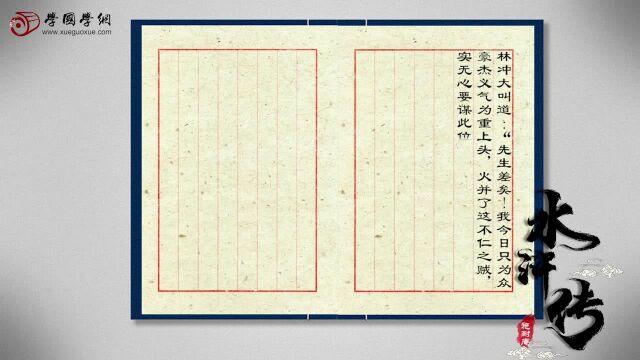 學國學網
www.xueguoxue.com
林冲大叫道：“先生差矣！我今日只为众
豪杰义气为重上头，火并了这不仁之贼，
实无心要谋此位
水浒传